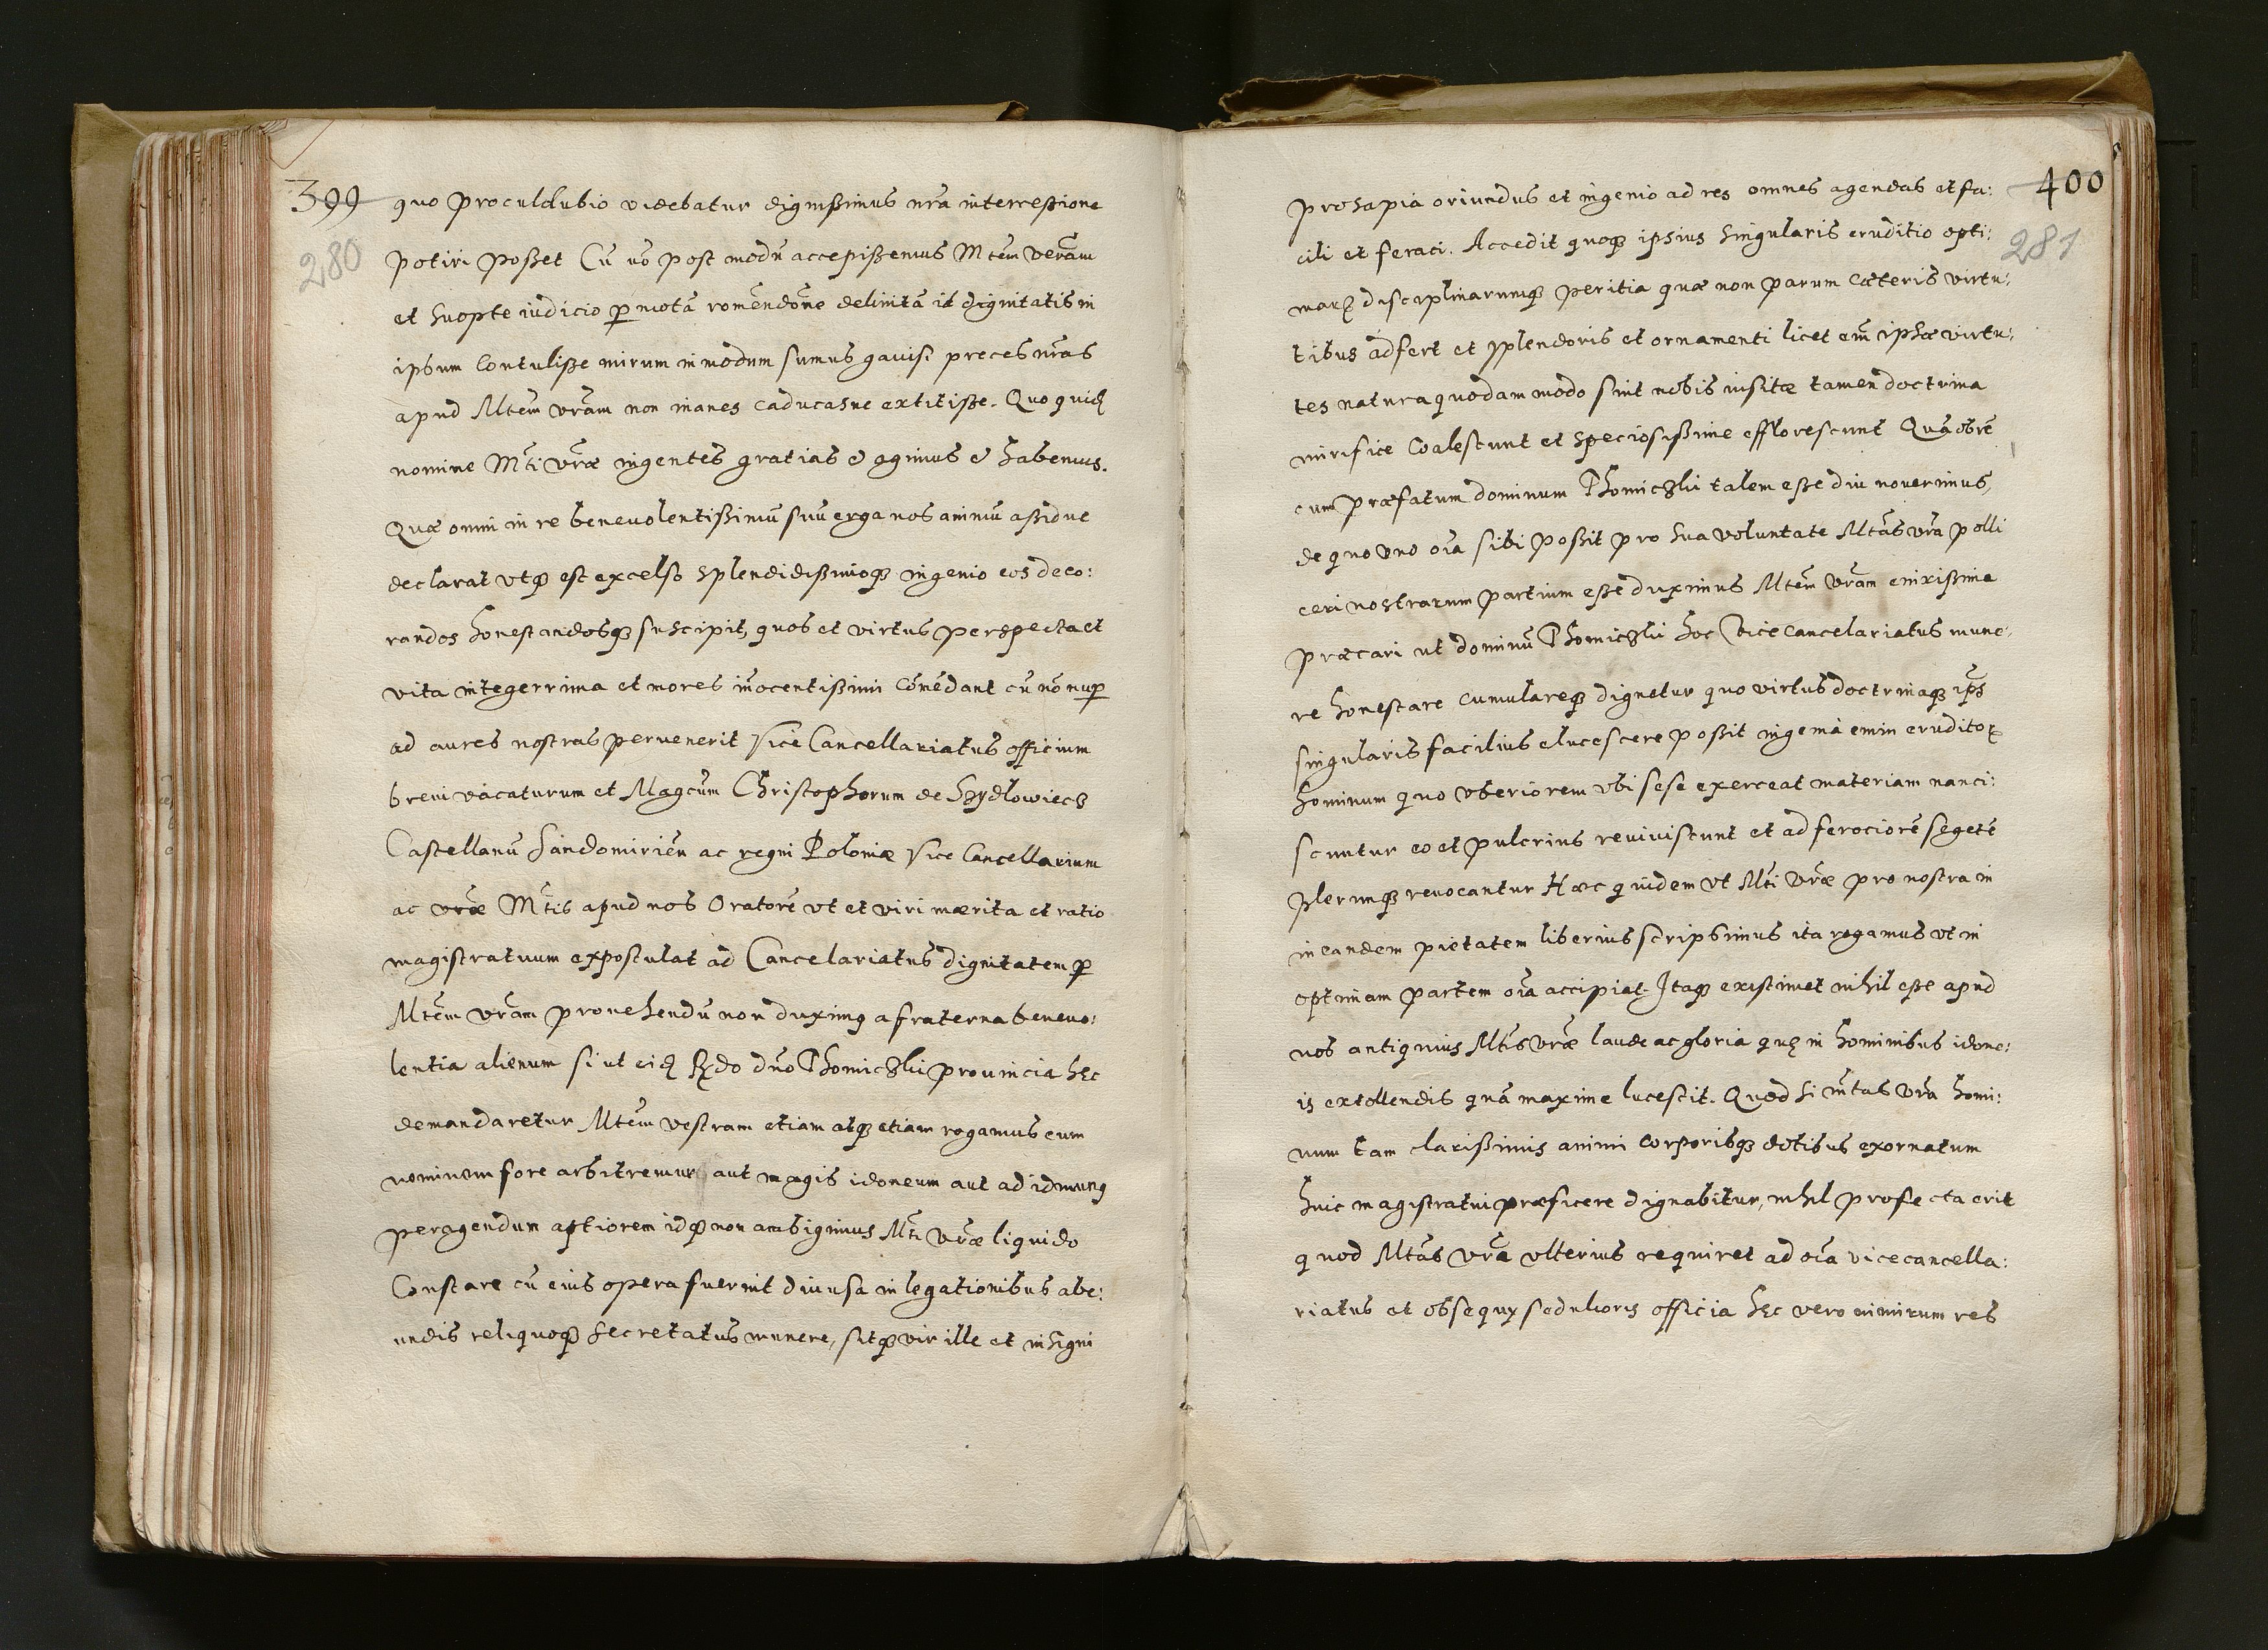 399
280
quo proculdubio videbatur dignißimus nrã intercessione
potiri poßet Cũ vo post modũ accepißemus Mtẽm verãm
et suopte iudicio p̱motã romẽndõne delinitã id dignitatis in
ipsum Contuliße mirum in modum sumus gauisi preces nrãs
apud Mtẽm vrãm non inanes caducasue extitiße. Quo quidẽ
nomine Mti vrãe ingentes gratias & agimus & habemus.
Quæ omni in re beneuolentißimũ suũ erga nos animũ aßidue
declarat vtq3 est excelso splendidißimoq3 ingenio eos deco:
randos honestandosq3 suscipit, quos et virtus perspecta et
vita integerrima et mores iñocentißimi cõmẽdant cũ nõ nup̱
ad aures nostras peruenerit Vice Cancellariatus officium
breui vacaturum et Magcũm Christophorum de Szydlowiecz
Castellanũ Sandomiriẽn ac regni Poloniæ Vice Cancellarium
ac vrãe Mtis apud nos Oratorẽ vt et viri mærita et ratio
magistratuum expostulat ad Cancelariatus dignitatem p̱
Mtẽm vrãm prouehendũ non duximg a fraterna beneuo:
lentia alienum si ut eidẽ Rdo dño Thomiczki prouincia hęc
demandaretur Mtẽm vestram etiam atq3 etiam rogamus eum
neminem fore arbitremur aut magis idoneum aut ad id mung
peragendum aptiorem idq3 non ambigimus Mti vrãe liquido
Constare cũ eius opera fuerint diu usa in legationibus abe:
undis reliquoq3 secretatus munere, sitq3 vir ille et insigni
400
281
prosapia oriundus et ingenio ad res omnes agendas et fa:
cili et feraci. Accedit quoq3 ipsius singularis eruditio opti:
marꝝ disciplinarumq3 peritia quæ non parum cæteris virtu:
tibus adfert et splendoris et ornamenti licet em̃ ipsæ virtu:
tes natura quodammodo sint nobis insitæ tamen doctrina
mirifice Coalescunt et speciosißime efflorescunt Quãobrẽ
cum præfatum dominum Thomiczki talem eße diu nouerimus,
de quo vno oĩa sibi poßit pro sua voluntate Mtãs vrã polli
ceri nostrarum partium eße duximus Mtẽm vrãm enixißime
præcari ut dominũ Thomiczki hoc Vicecancelariatus mune:
re honestare cumulareq3 dignetur quo virtus doctrinaq3 ip̃s
singularis facilius elucescere poßit ingenia enim eruditoꝝ
hominum quo vberiorem vbi sese exerceat materiam nanci:
scuntur eo et pulcrius reuiuiscunt et ad ferociorẽ segetẽ
plerunq3 reuocantur Hæc quidem vt Mti vrãe pro nostra in
in eandem pietatem liberius scripsimus ita rogamus vt in
optimam partem oĩa accipiat. Itaq3 existimet nihil eße apud
nos antiquius Mtis vrãe laude ac gloria quę in hominibus idone:
is extollendis quã maxime lucescit. Quod si mtãs vrã homi:
num tam clarißimis animi corporisq3 dotibus exornatum
huic magistratui præficere dignabitur, nihil profecta erit
quod Mtãs vrã vlterius requiret ad oĩa vicecancella:
riatus et obsequÿ sedulioris officia hęc vero nimirum res